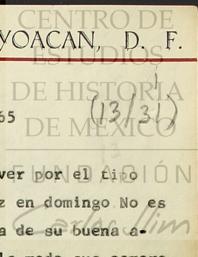 CENTRO DE
YOACAN, D. F.
ESTUDIOS
DE HISTORIA
65
(13/31)
DE MÉXICO
ver por el tipo
FUNDACIÓN
z en domingo No es
a de su buena a-
Carlos Slim